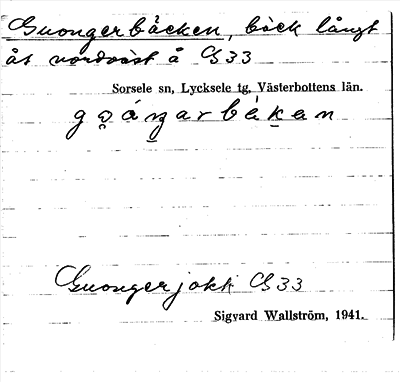 Guongerbäcken, bäck långt
åt nordväst å G33
Sorsele sn, Lycksele tg, Västerbottens län.
Guongerjokk G33
Sigvard Wallström, 1941.